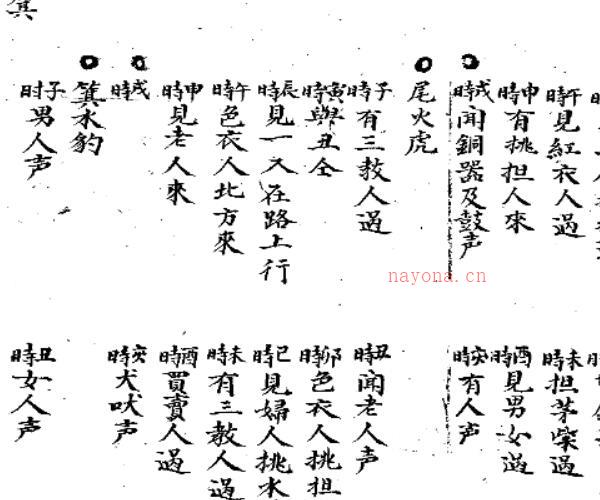 午時見紅衣人過
未時担茅柴過
申時有挑担人來
酉時見男女過
戌時聞銅器及鼓声
亥時有人声
尾火虎
子時有三教人過
丑時聞老人声
寅時與丑仝
卯時色衣人挑担
辰時見一人在路上行
巳時見婦人挑水
午時色衣人北方來
未時有三教人過
申時見老人來
酉時買賣人過
戌時
亥時犬吠声
箕水豹
子时男人声
丑時女人声
箕
nayona.cn